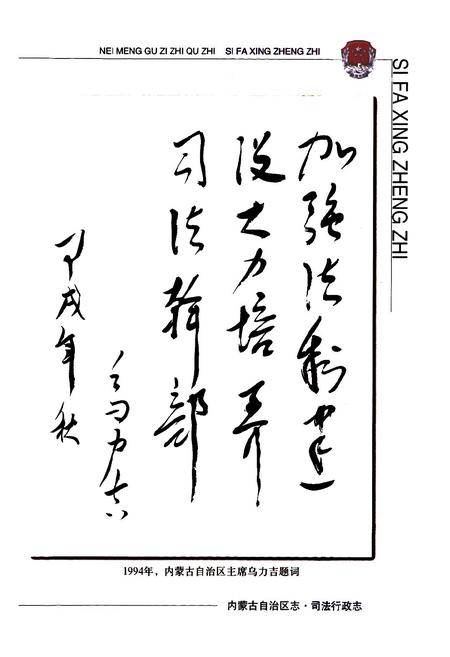 NEI MENG GU ZI ZHI QU ZHI SI FA XING ZHENG ZHI
SI FA XING ZHENG ZHI
加强法制建
设大力培养
司法幹部
乌力吉
甲戌年秋
1994年，内蒙古自治区主席乌力吉题词
内蒙古自治区志·司法行政志